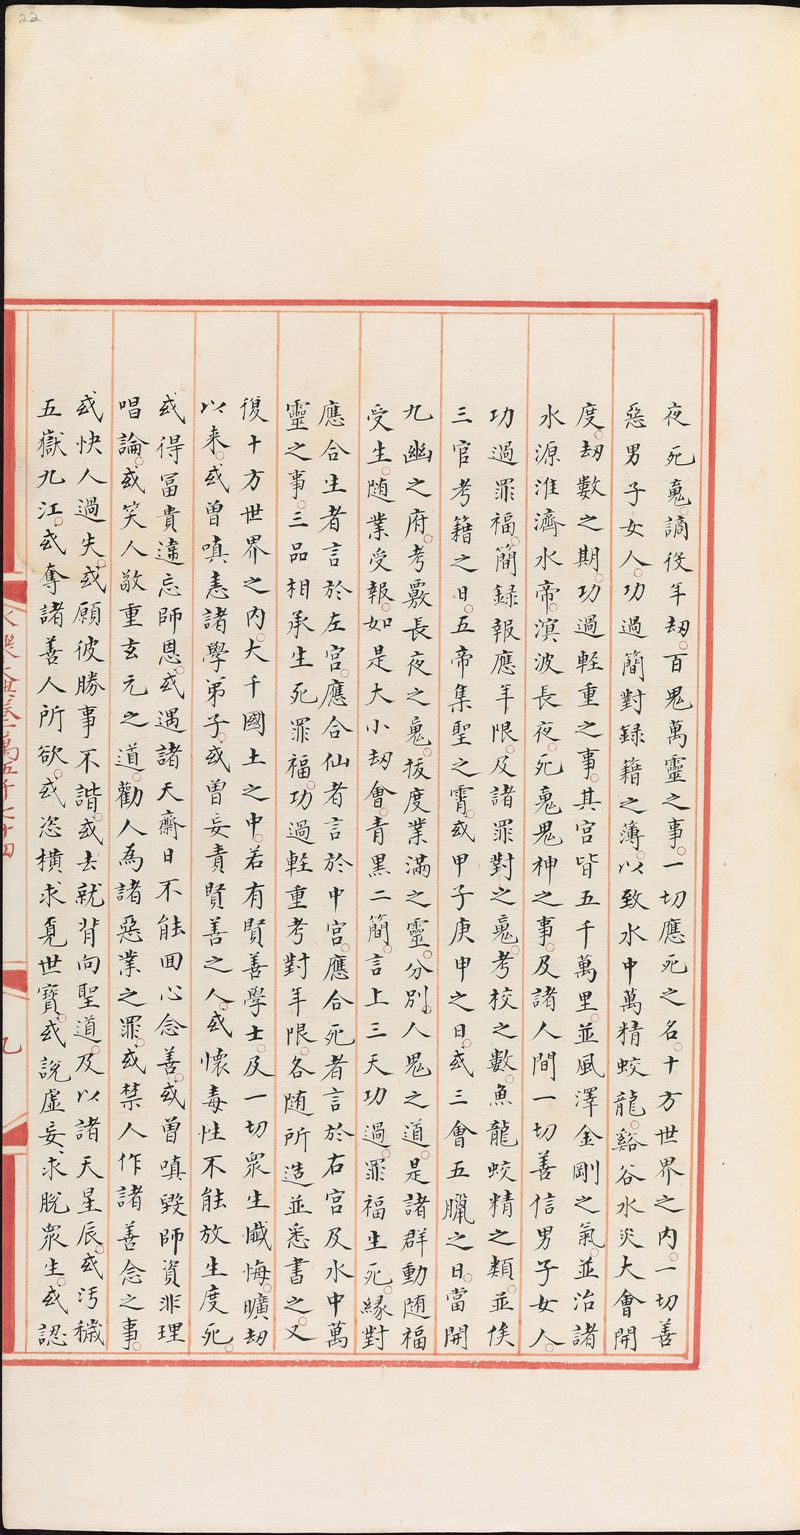 22
夜死䰟。謫役年刼。百鬼萬靈之事。一切應死之名。十方世界之内。一切善
惡男子女人。功過簡對録籍之薄。以致水中萬精蛟龍。谿谷水災大會開
度。刼數之期。功過輕重之事。其宫皆五千萬里。並風澤金剛之氣。並治諸
水源淮濟水帝。溟波長夜。死䰟鬼神之事。及諸人間一切善信男子女人。
功過罪福。簡録報應年限。及諸罪對之䰟。考校之數。魚龍蛟精之類。並俟
三官考籍之日。五帝集聖之霄。或甲子庚申之日。或三會五臘之日。當開
九幽之府。考覈長夜之䰟。拔度業滿之靈。分别人鬼之道。是諸群動随福
受生。随業受報。如是大小刼會。青黑二簡。言上三天功過。罪福生死。緣對
應合生者言於左宫。應合仙者言於中宫。應合死者言於右宫及水中萬
靈之事。三品相承生死罪福。功過輕重考對年限。各随所造並悉書之。又
復十方世界之内。大千國土之中。若有賢善學士。及一切衆生懴悔。曠刼
以来。或曾嗔恚諸學弟子。或曾妄責賢善之人。或懷毒性不能放生度死。
或得冨貴違忘師恩。或遇諸天齋日不能回心念善。或曾嗔毀師資非理
唱論。或笑人敬重玄元之道。勸人爲諸惡業之罪。或禁人作諸善念之事。
或快人過失。或願彼勝事不諧。或去就背向聖道。及以諸天星辰。或汚穢
五嶽九江。或奪諸善人所欲。或恣横求覓世寶。或説虛妄、求脱衆生。或認